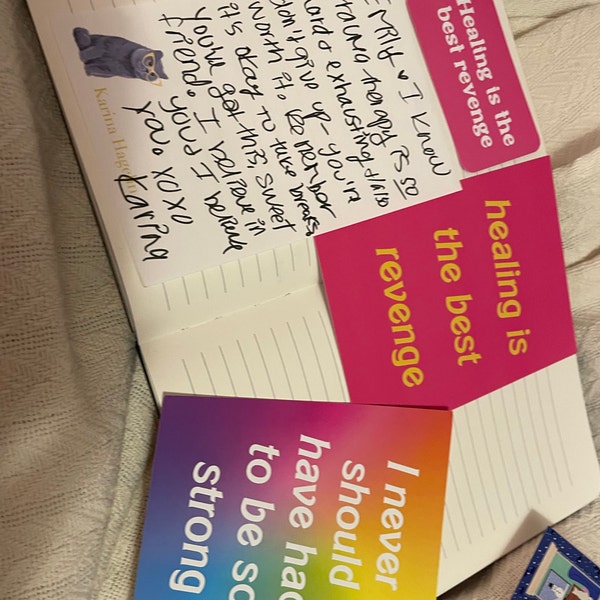 Healing is the
best revenge
I know
trauma therapy is so
hard & exhausting
don't give up - you're
worth it. Remember
it's okay to take breaks.
You've got this, sweet
friend. I believe in
you & I believe
you. xoxo
Karina
Karina
healing is
the best
revenge
I never
should
have had
to be so
strong